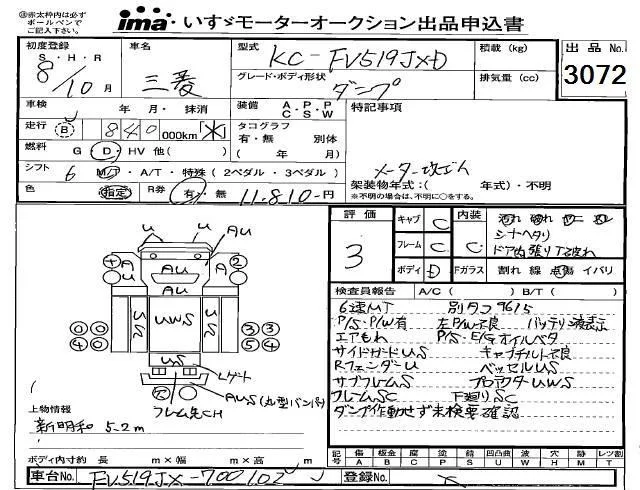 ㊟赤太枠内は必ず
ボールペンで
ご記入下さい。
ima いすゞモーターオークション出品申込書
初度登録
S・H・R
8/10月
車名
三菱
型式
KC-FV519JXD
グレード・ボディ形状
ダンプ
積載 (kg)
排気量 (cc)
出品No.
3072
車検 年 月・抹消
装備 A・P・P C・S・W
特記事項
走行 B 840 000km
タコグラフ
有・無 別体
( 年 月)
燃料 G・D・HV 他( )
シフト 6 MT・A/T・特殊(2ペダル・3ペダル)
色 指定 R券 有・無 11,810-円
メーター改ざん
架装物年式:( 年式)・不明
※不明の場合は、不明に○をする。
評価
3
キャブ C
フレーム C
ボディ D
内装 C
シートヘタリ
ドア内張り下破れ
Fガラス 割れ 線 点傷 イバリ
検査員報告 A/C( ) B/T( )
6速MT 別タコ9615
P/S・P/W有 左P/W不良 バッテリ液表示
エアもれ P/S・E/Gオイルベタ
サイドガードUS キャブチルト不良
RフェンダーU ベッセルUS
サブフレームS プロテクターUWS
フレームSC 下廻りSC
ダンプ作動せず未検要確認
U U AU
A AU A
1 2
US UWS US
0 0 3 3
4 0 5 4
US
Lゲート
AUS(丸型バンパ)
フレーム先CH
上物情報
新明和 5.2m
ボディ内寸約 長 m×幅 m×高 m
記号 傷A 板金B 腐C 塗P 錆S 凹凸曲U 波W 穴H 熱M レツ割T
車台No. FV519JX-700102
登録No.